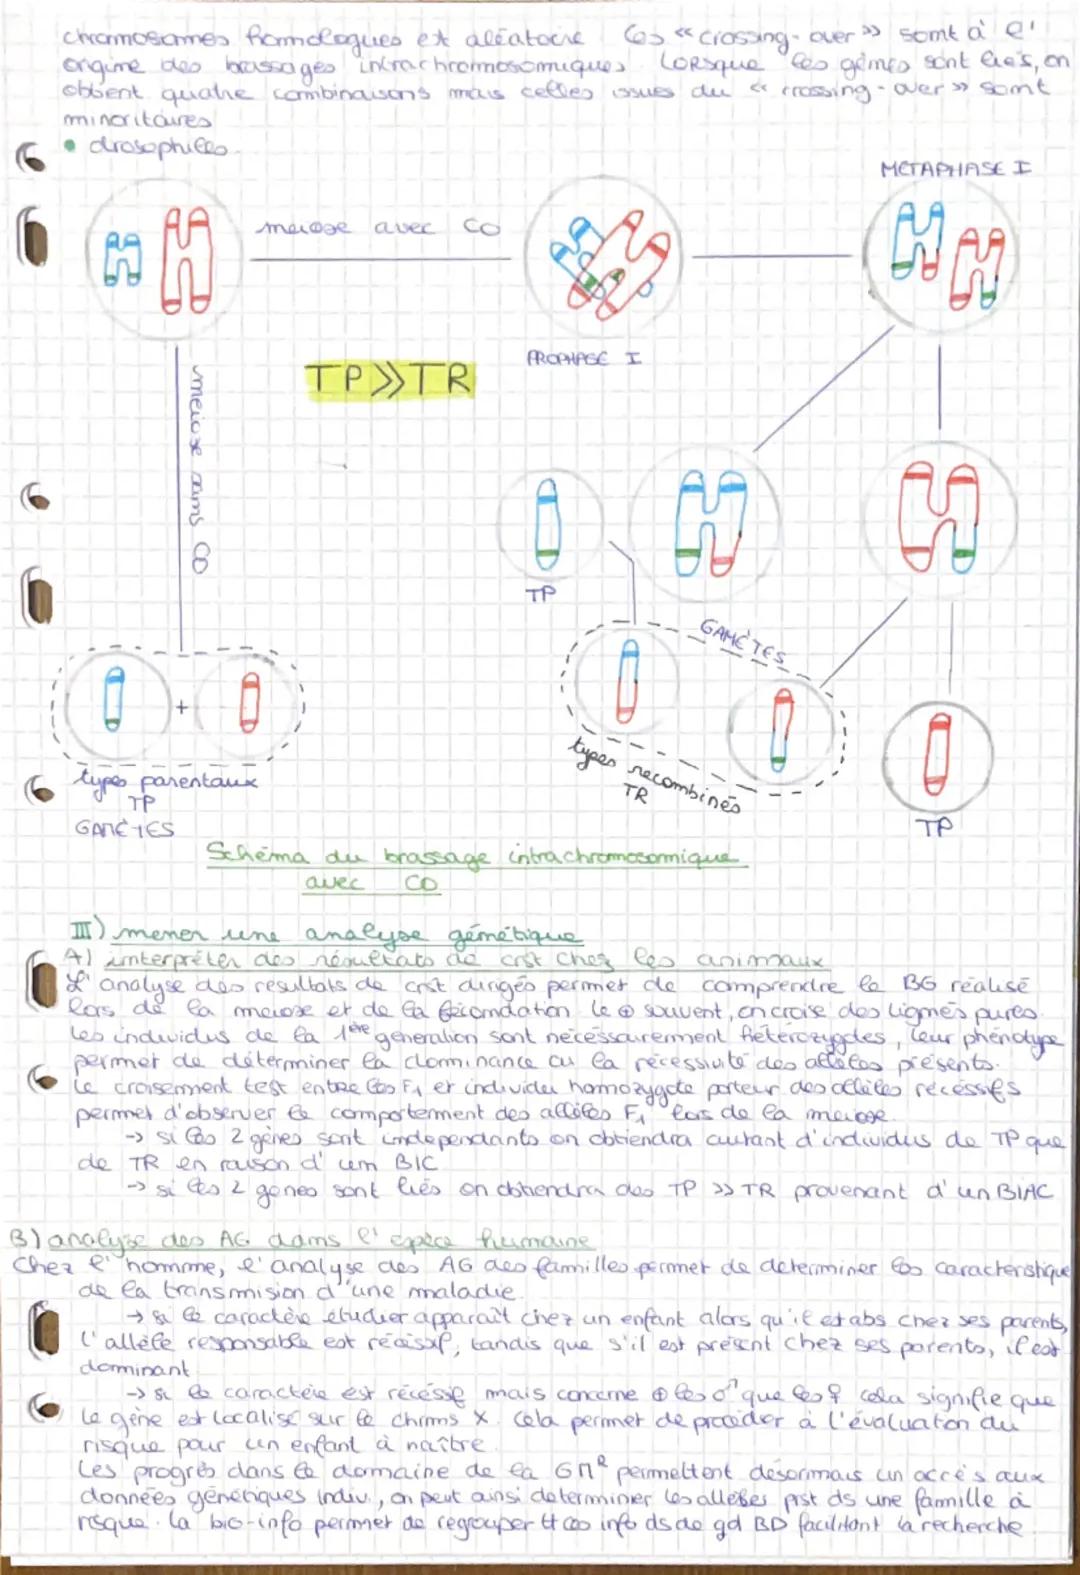 chromosomes homologues est aléatoire. Les « crossing-over » sont à l'
origine des brassages intrachromosomiques. Lorsque les gènes sont liés, on
obtient quatre combinaisons mais celles issues du « crossing-over » sont
minoritaires
• drosophiles
METAPHASE I
meiose avec CO
PROPHASE I
TP >> TR
meiose sans CO
TP
GAMÈTES
+
types parentaux
TP
GAMÈTES
types recombinés
TR
TP
Schéma du brassage intrachromosomique
avec CO
III) mener une analyse génétique
A) interpréter des résultats de crst chez les animaux
L'analyse des resultats de crst dirigés permet de comprendre le BG réalisé
lors de la meiose et de la fécondation. Le ⊕ souvent, on croise des lignées pures.
Les individus de la 1ère generation sont nécessairement hétérozygotes, leur phénotype
permet de déterminer la dominance ou la récessivité des allèles présents.
Le croisement test entre les F1 et individu homozygote porteur des allèles récessifs
permet d'observer le comportement des allèles F1 lors de la meiose.
-> si les 2 gènes sont independants on obtiendra autant d'individus de TP que
de TR en raison d'um BIC
-> si les 2 genes sont liés on obtiendra des TP >> TR provenant d'un BIAC
B) analyse des AG dams l'espèce humaine
Chez l'homme, l'analyse des AG des familles permet de determiner les caracteristique
de la transmision d'une maladie.
-> si le caractère étudier apparaît chez un enfant alors qu'il est abs chez ses parents,
l'allèle responsable est récessif, tandis que s'il est présent chez ses parents, il est
dominant.
-> si le caractère est récessif mais concerne ⊕ les ♂ que les ♀ cela signifie que
le gène est localisé sur le chrms X. Cela permet de procéder à l'évaluation du
risque pour un enfant à naître.
Les progrès dans le domaine de la GM² permettent désormais un accès aux
données génétiques indiv., on peut ainsi determiner les allèles prst ds une famille à
risque. La bio-info permet de regrouper tt ces info ds de gd BD facilitant la recherche.